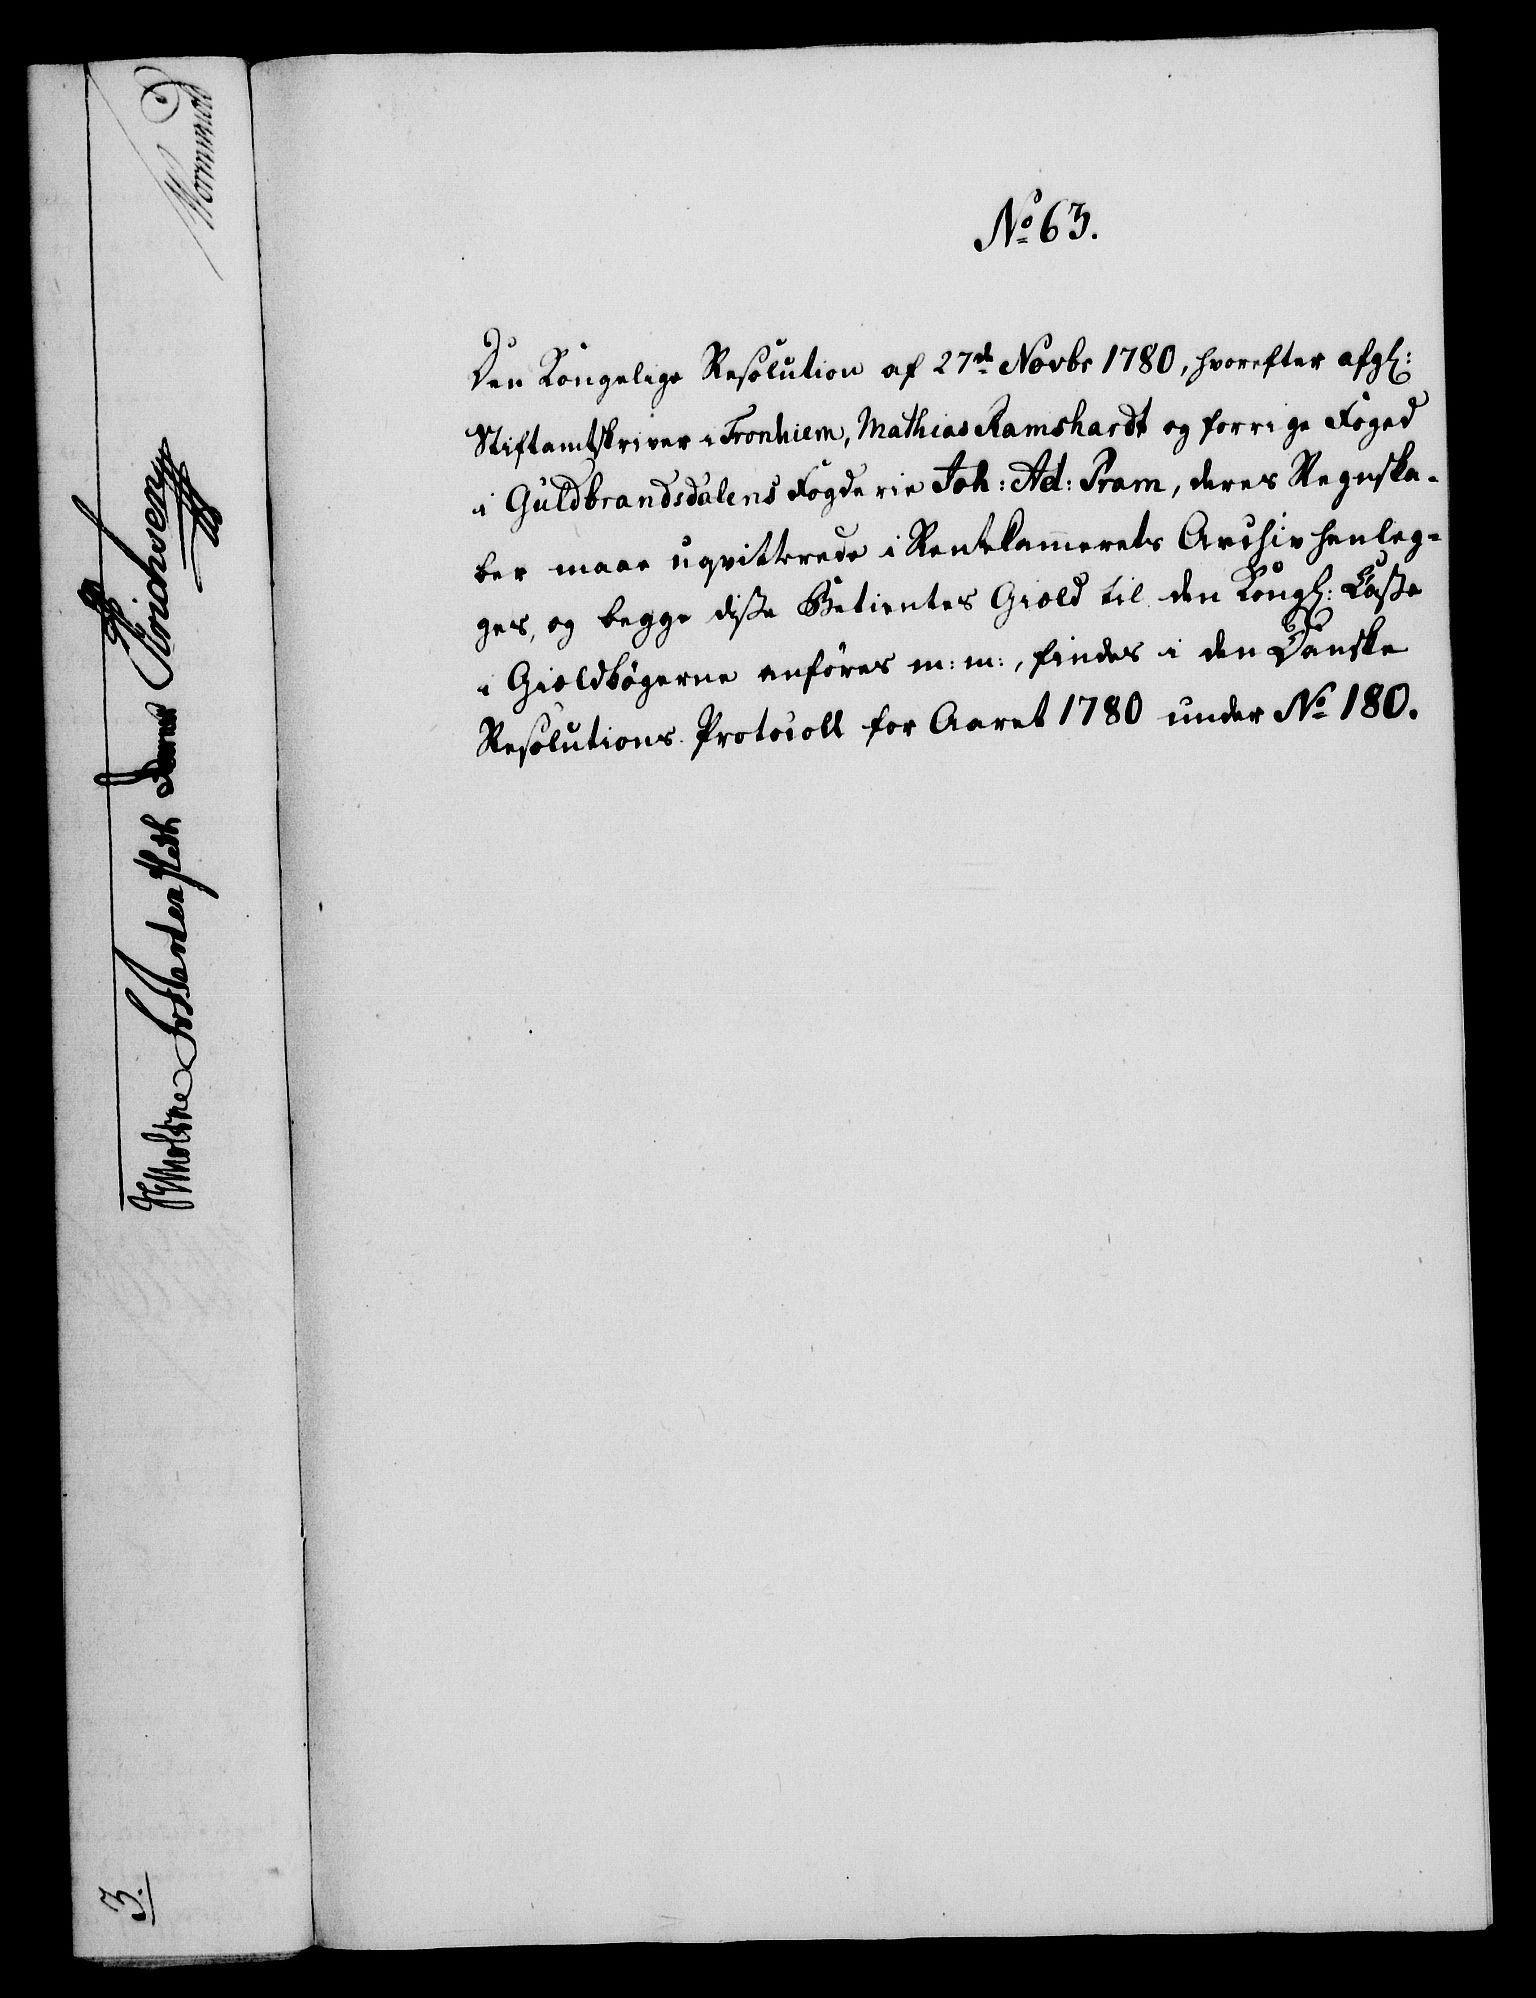 No 63.
Den Kongelige Resolution af 27de Novbr 1780, hvorefter afgl:
Stiftamtskriver i Tronhiem, Mathias Ramshardt og forrige Foged
i Guldbrandsdalens Fogderie Joh: Ad: Pram, deres Regnska-
ber maae uqvitterede i Rentekammerets Archiv henleg-
ges, og begge disse Betientes Giæld til den Kongl: Casse
i Gioldbøgerne anføres m: m:, findes i den Danske
Resolutions Protocoll for Aaret 1780 under No 180.
Wormskiold
Erichsen
3.